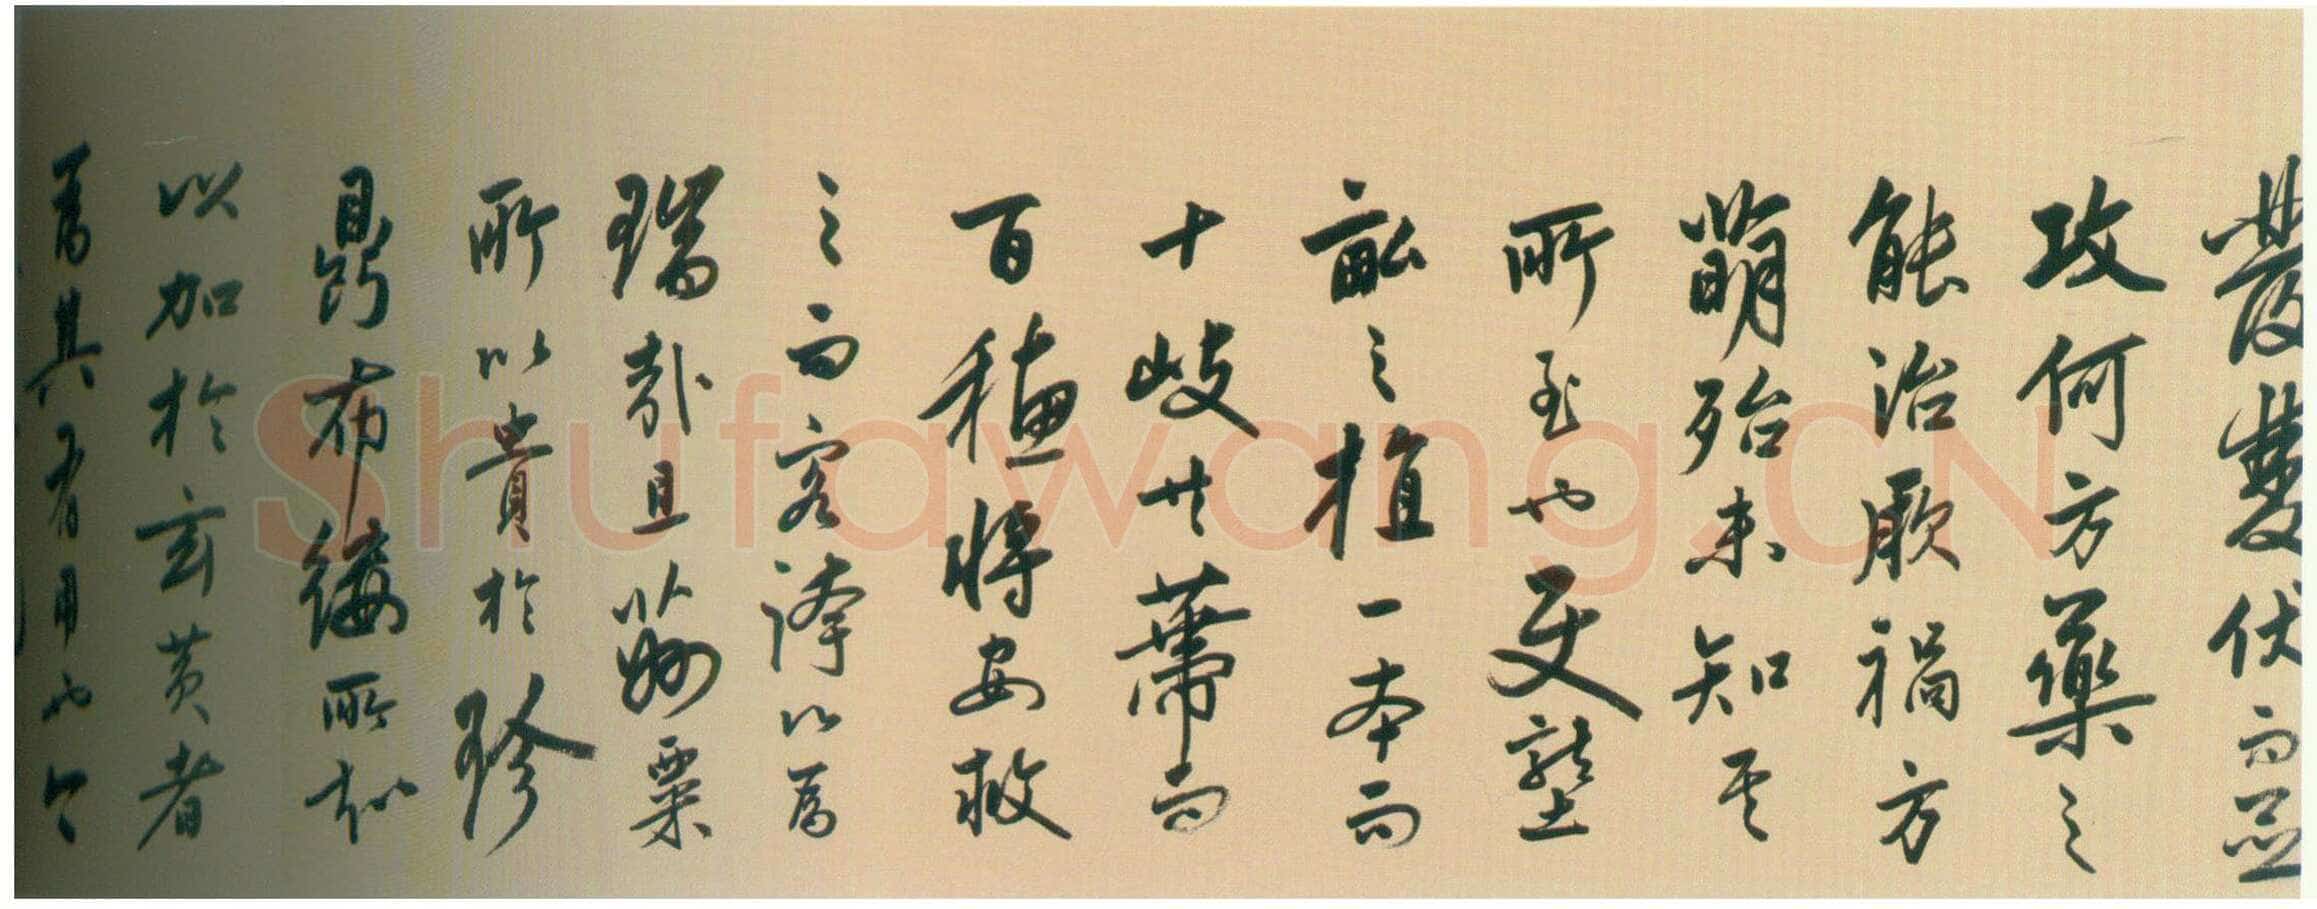 伏而
攻何方藥之
能治厥禍方
萌殆未知其
所至也更壟
畝之植一本而
十歧廿蒂而
百穗將安救
之而容誇以為
瑞哉且芻粟
所以貴於珍
鼎布縷所
以加於玄黃者
為其有用也今
Shufawang.CN